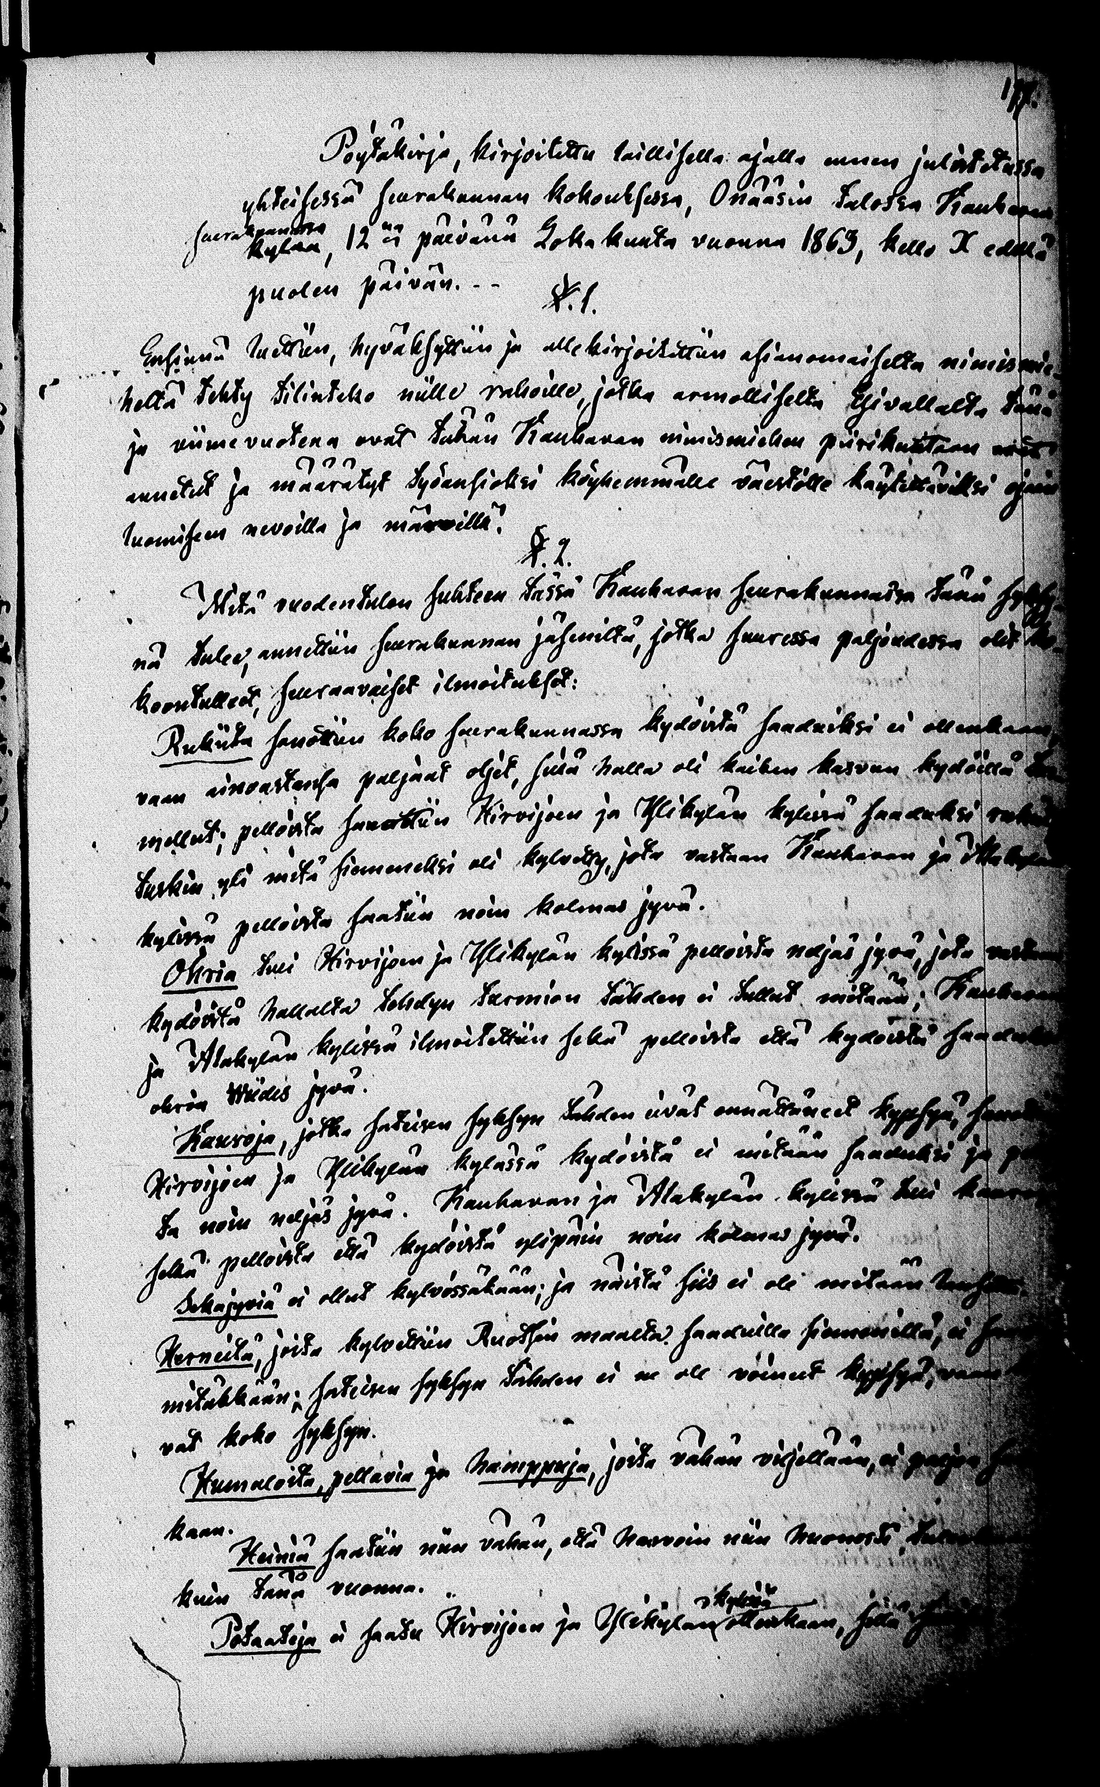 177.
Pöytäkirja, kirjoitettu laillisella ajalla ennen julistetussa
yhteisessä seurakunnan kokouksessa, Onääsin talossa Kauhavan
seurakunnassa
kylää, 12na päivänä Lokakuuta vuonna 1863, kello X edellä
puolen päivän. --
§.1.
Ensinnä luettiin, hyväksyttiin ja allekirjoitettiin asianomaiselta nimismie-
heltä tehty tilinteko niille rahoille, jotka armolliselta Esivallalta tänä
ja viime vuotena ovat tähän Kauhavan nimismiehen piirikuntaan
annetut ja määrätyt työansioksi köyhemmälle väestölle käytettäviksi ojain
luomiseen nevoilla ja
§.2.
Mitä vuodentulon suhteen tässä Kauhavan seurakunnassa tänä
nä tulee, annettiin seurakunnan jäseniltä, jotka suuressa paljoudessa olit
koontulleet, seuraavaiset ilmoitukset:
Rukiita sanottiin koko seurakunnassa kydöistä saaduiksi ei ollenkaan,
vaan ainoastansa paljaat oljet, sillä halla oli kaiken kasvun kydöillä
mellut; pelloista sanottiin Hirvijoen ja Ylikylän kylissä saaduksi
tuskin yli mitä siemeneksi oli kylvetty, jota vastaan Kauhavan ja Alakylän
kylissä pelloista saatiin noin kolmas jyvä.
Ohria tuli Hirvijoen ja Ylikylän kylissä pelloista neljäs jyvä, jota vastaan
kydöistä hallalta tehdyn turmion tähden ei tullut mitään; Kauhavan
ja Alakylän kylissä ilmoitettiin sekä pelloista että kydöistä
ohria Wiides jyvä.
Kauroja, jotka sateisen syksyn tähden eivät ennättäneet kypsyä,
Hirvijoen ja Ylikylän kylässä kydöistä ei mitään saaduksi ja
ta noin neljäs jyvä. Kauhavan ja Alakylän kylissä tuli
sekä pelloista että kydöistä ylipäin noin kolmas jyvä.
Sekajyviä ei ollut kylvössäkään; ja näistä siis ei ole mitään
Herneitä, joita kylvettiin Ruotsin maalta saaduilla siemenillä, ei
mitäkkään; sateisen syksyn tähden ei ne ole voineet kypsyä, vaan
vat koko syksyn.
Humaloita, pellavia ja hamppuja, joita vähän viljellään, ei
kaan.
Heiniä saatiin niin vähän, että harvoin niin huonosti
kuin tänä vuonna.
kylissä
Potaatoja ei saatu Hirvijoen ja Ylikylän ollenkaan, sillä